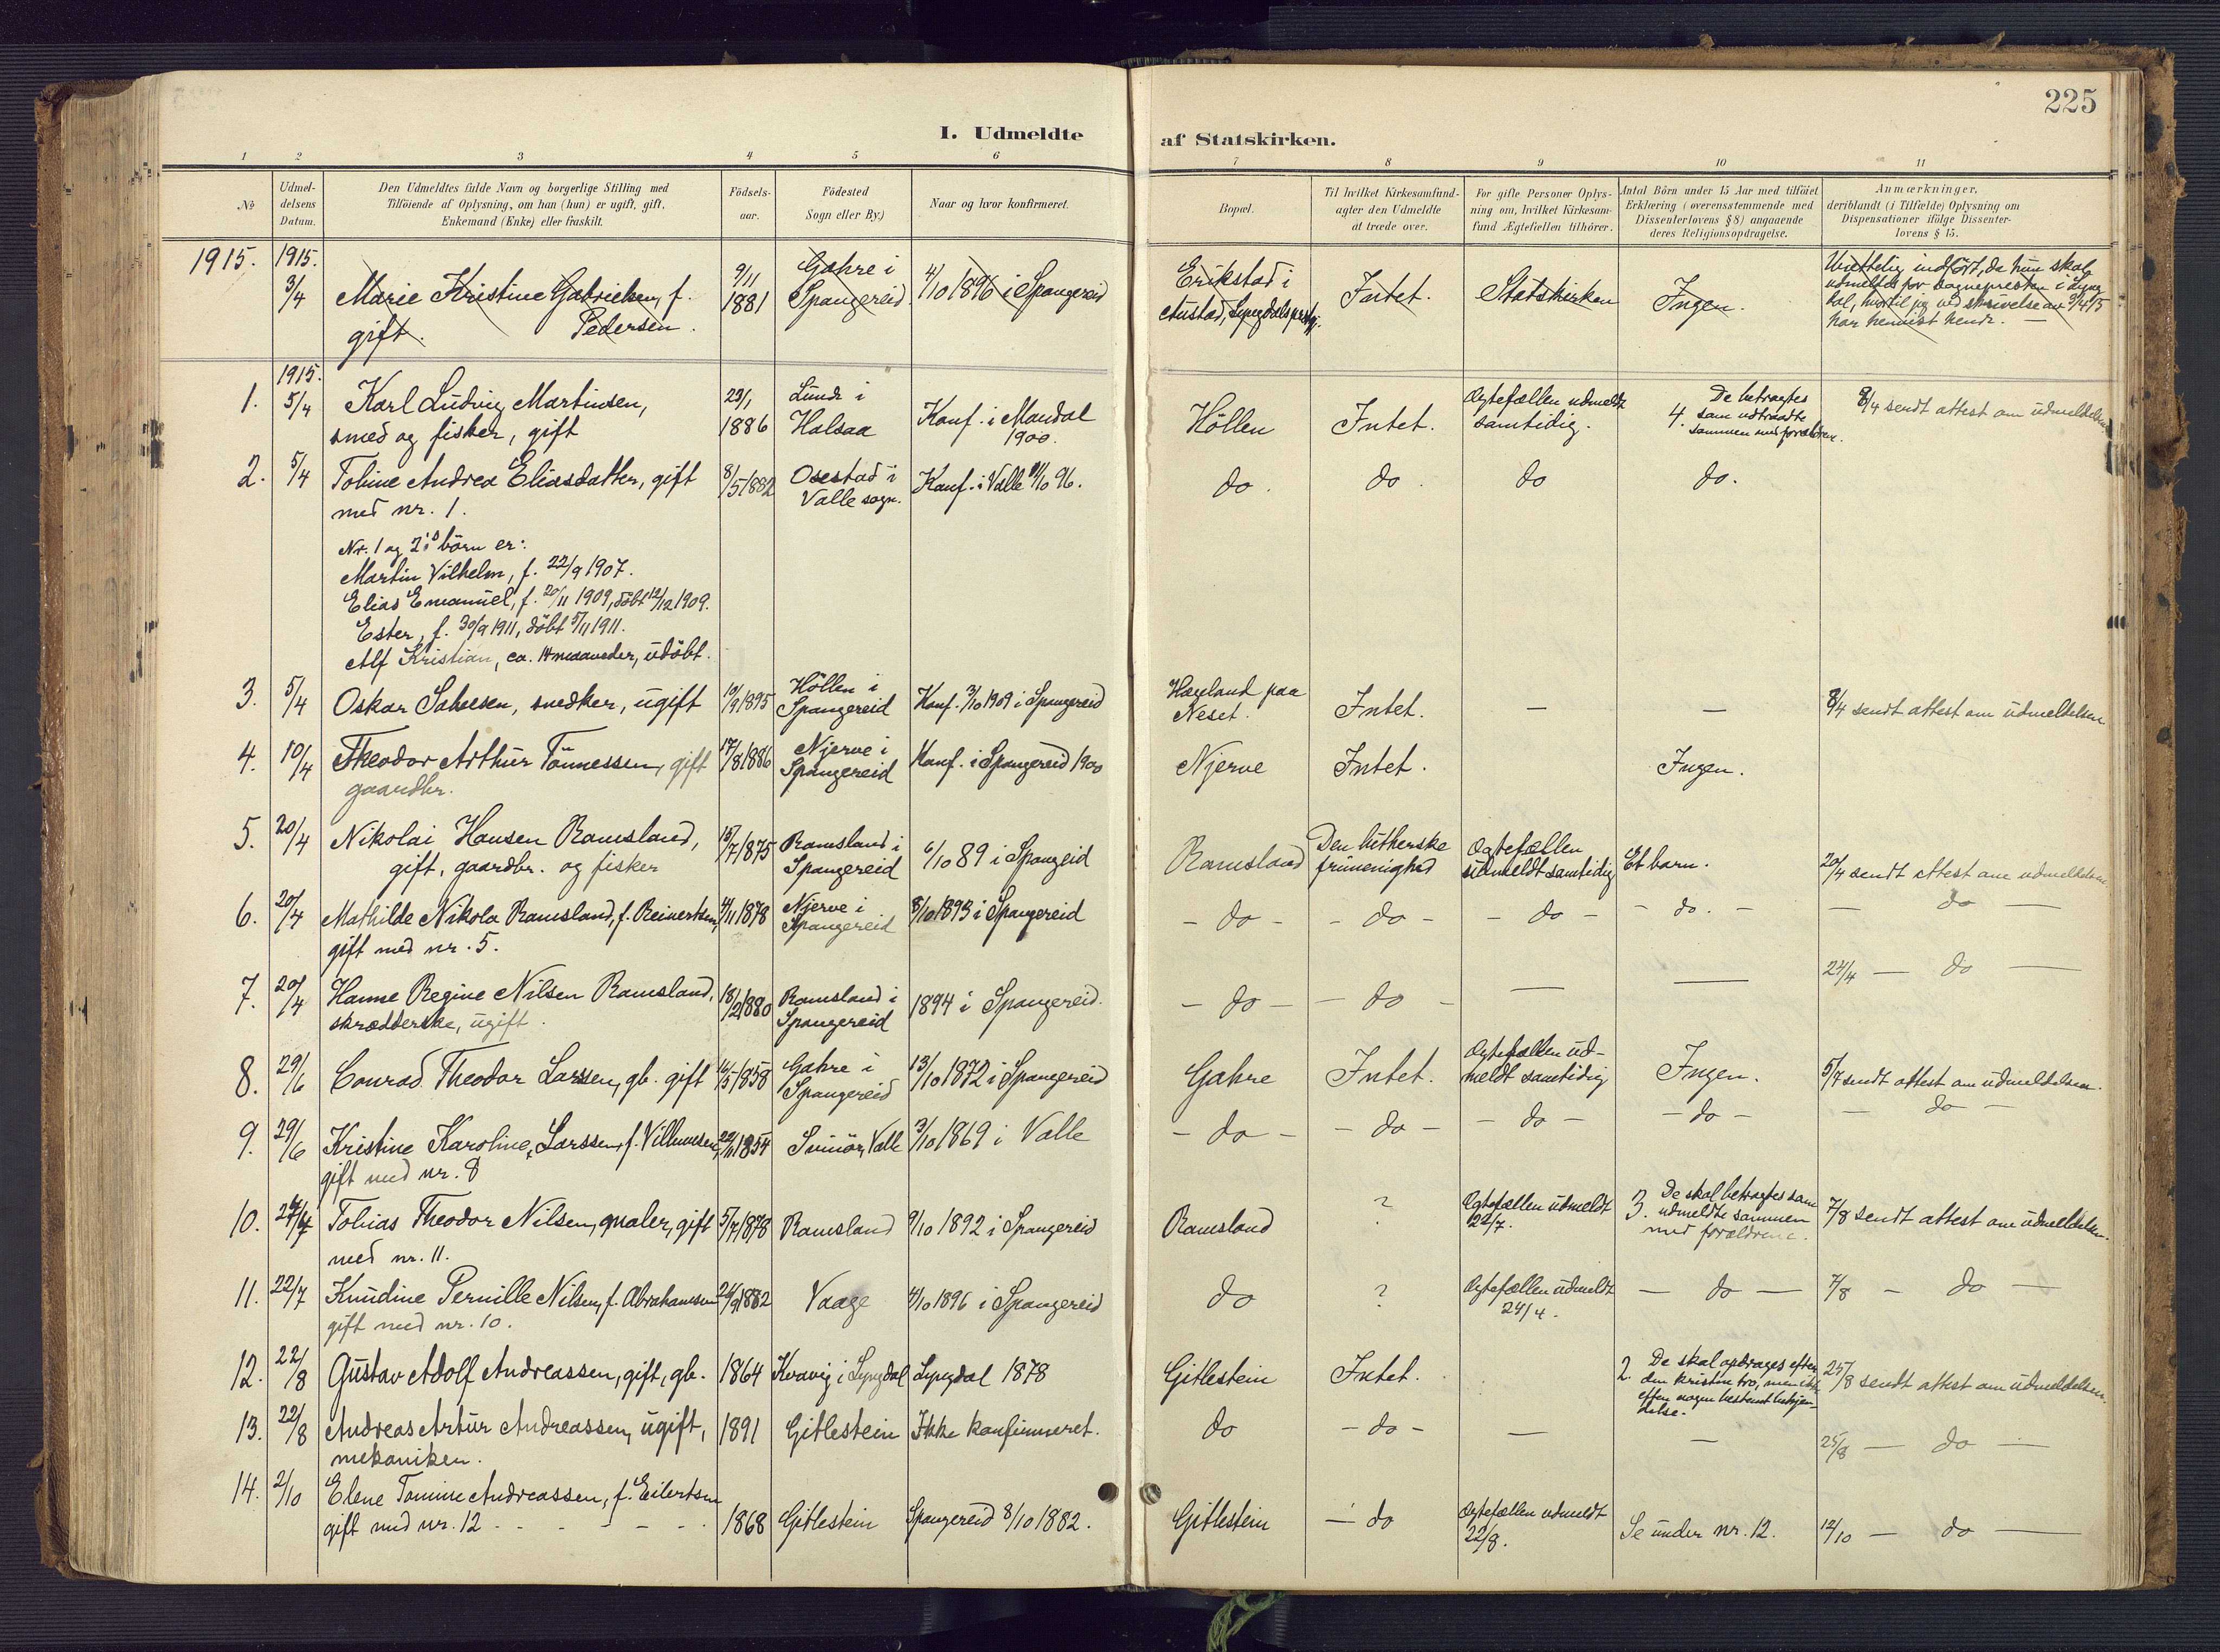 225
I. Udmeldte af Statskirken.
1 2 3 4 5 6 7 8 9 10 11
№
Udmel-
delsens
Datum.
Den Udmeldtes fulde Navn og borgerlige Stilling med
Tilföiende af Oplysning, om han (hun) er ugift, gift,
Enkemand (Enke) eller fraskilt.
Födsels-
aar.
Födested
Sogn eller By.)
Naar og hvor konfirmeret.
Bopæl.
Til hvilket Kirkesamfund-
agter den Udmeldte
at træde over.
For gifte Personer Oplys-
ning om, hvilket Kirkesam-
fund Ægtefællen tilhörer.
Antal Börn under 15 Aar med tilföiet
Erklæring (overensstemmende med
Dissenterlovens § 8) angaaende
deres Religionsopdragelse.
Anmærkninger,
deriblandt (i Tilfælde) Oplysning om
Dispensationer ifölge Dissenter-
lovens § 15.
1915.
1915.
3/4
Marie Kristine Gabrielsen, f.
Pedersen.
gift.
9/11
1881
Gahre i
Spangereid
4/10 1896 i Spangereid
Erikstad i
Austad, Lyngdals prstgj.
Intet.
Statskirken
Ingen.
Urettelig indfört, da hun skal
udmeldes for sognepresten i Lyng-
dal, hvortil jeg ved skrivelse av 9/4 15
har henvist hende. —
1915.
1.
5/4
Karl Ludvig Martinsen,
smed og fisker, gift
23/1
1886
Lunde i
Halsaa
Konf. i Mandal
1900.
Höllen
Intet.
Ægtefællen udmeldt
samtidig.
4.
De betragtes
som udtraadte
sammen med forældrene.
8/4 sendt attest om udmeldelsen
2.
5/4
Tobine Andrea Eliasdatter, gift
med nr. 1.
8/5 1882
Osestad i
Valle sogn.
Konf. i Valle 11/10 96.
do.
do.
do
do.
Nr. 1 og 2's börn er:
Martin Vilhelm, f. 22/9 1907.
Elias Emanuel, f. 20/11 1909, döbt 12/12 1909.
Ester, f. 30/9 1911, döbt 5/11 1911.
Alf Kristian, ca. 14 maaneder, udöbt.
3.
5/4
Oskar Salvesen, snedker, ugift
10/9 1895
Höllen i
Spangereid
Konf. 3/10 1909 i Spangereid
Hægeland paa
Neset.
Intet.
—
—
8/4 sendt attest om udmeldelsen
4.
10/4
Theodor Arthur Tönnessen, gift
gaardbr.
17/8 1886
Njerve i
Spangereid
Konf. i Spangereid 1900
Njerve
Intet.
Ingen.
5.
20/4
Nikolai Hansen Ramsland,
gift, gaardbr. og fisker
15/7 1875
Ramsland i
Spangereid
6/10 89 i Spangeid
Ramsland
Den lutherske
frimenighed
Ægtefællen
udmeldt samtidig
Et barn.
20/4 sendt attest om udmeldelsen.
6.
20/4
Mathilde Nikola Ramsland, f. Reinertsen,
gift med nr. 5.
4/11 1878
Njerve i
Spangereid
8/10 1893 i Spangereid
- do -
- do -
- do -
- do. -
— do —
7.
20/4
Hanne Regine Nilsen Ramsland,
skrædderske, ugift.
18/2 1880
Ramsland i
Spangereid
1894 i Spangereid.
- do -
— do -
—
—
24/4 — do —
8.
29/6
Conrad Theodor Larssen, gb. gift
16/5 1858
Gahre i
Spangereid
13/10 1872 i Spangereid
Gahre
Intet.
Ægtefællen ud-
meldt samtidig
Ingen.
5/7 sendt attest om udmeldelsen.
9.
29/6
Kristine Karoline Larssen, f. Villumsen,
gift med nr. 8
22/11 1854
Svinör, Valle
3/10 1869 i Valle
- do -
- do -
- do -
- do -
— do —
10.
24/4
Tobias Theodor Nilsen, maler, gift
med nr. 11.
5/7 1878
Ramsland
9/10 1892 i Spangereid
Ramsland
?
Ægtefællen udmeldt
22/7.
3.
De skal betragtes som
udmeldte sammen
med forældrene.
7/8 sendt attest om udmeldelsen.
11.
22/7
Knudine Pernille Nilsen, f. Abrahamsen
gift med nr. 10.
24/9 1882
Vaage
4/10 1896 i Spangereid
do
?
Ægtefællen udmeldt
24/4.
— do —
7/8 - do —
12.
22/8
Gustav Adolf Andreassen, gift, gb.
1864
Kvavig i Lyngdal
Lyngdal 1878
Gitlestein
Intet.
2.
De skal opdrages efter
den kristne tro, men ikke
efter nogen bestemt bekjen-
delse.
25/8 sendt attest om udmeldelsen.
13.
22/8
Andreas Artur Andreassen, ugift,
mekaniker.
1891
Gitlestein
Ikke konfirmeret.
do
- do -
—
—
25/8 — do —
14.
2/10
Elene Tomine Andreassen, f. Eilertsen
gift med nr. 12
1868
Gitlestein
Spangereid 8/10 1882.
Gitlestein
— do
Ægtefællen udmeldt
22/8.
Se under nr. 12.
12/10 — do —